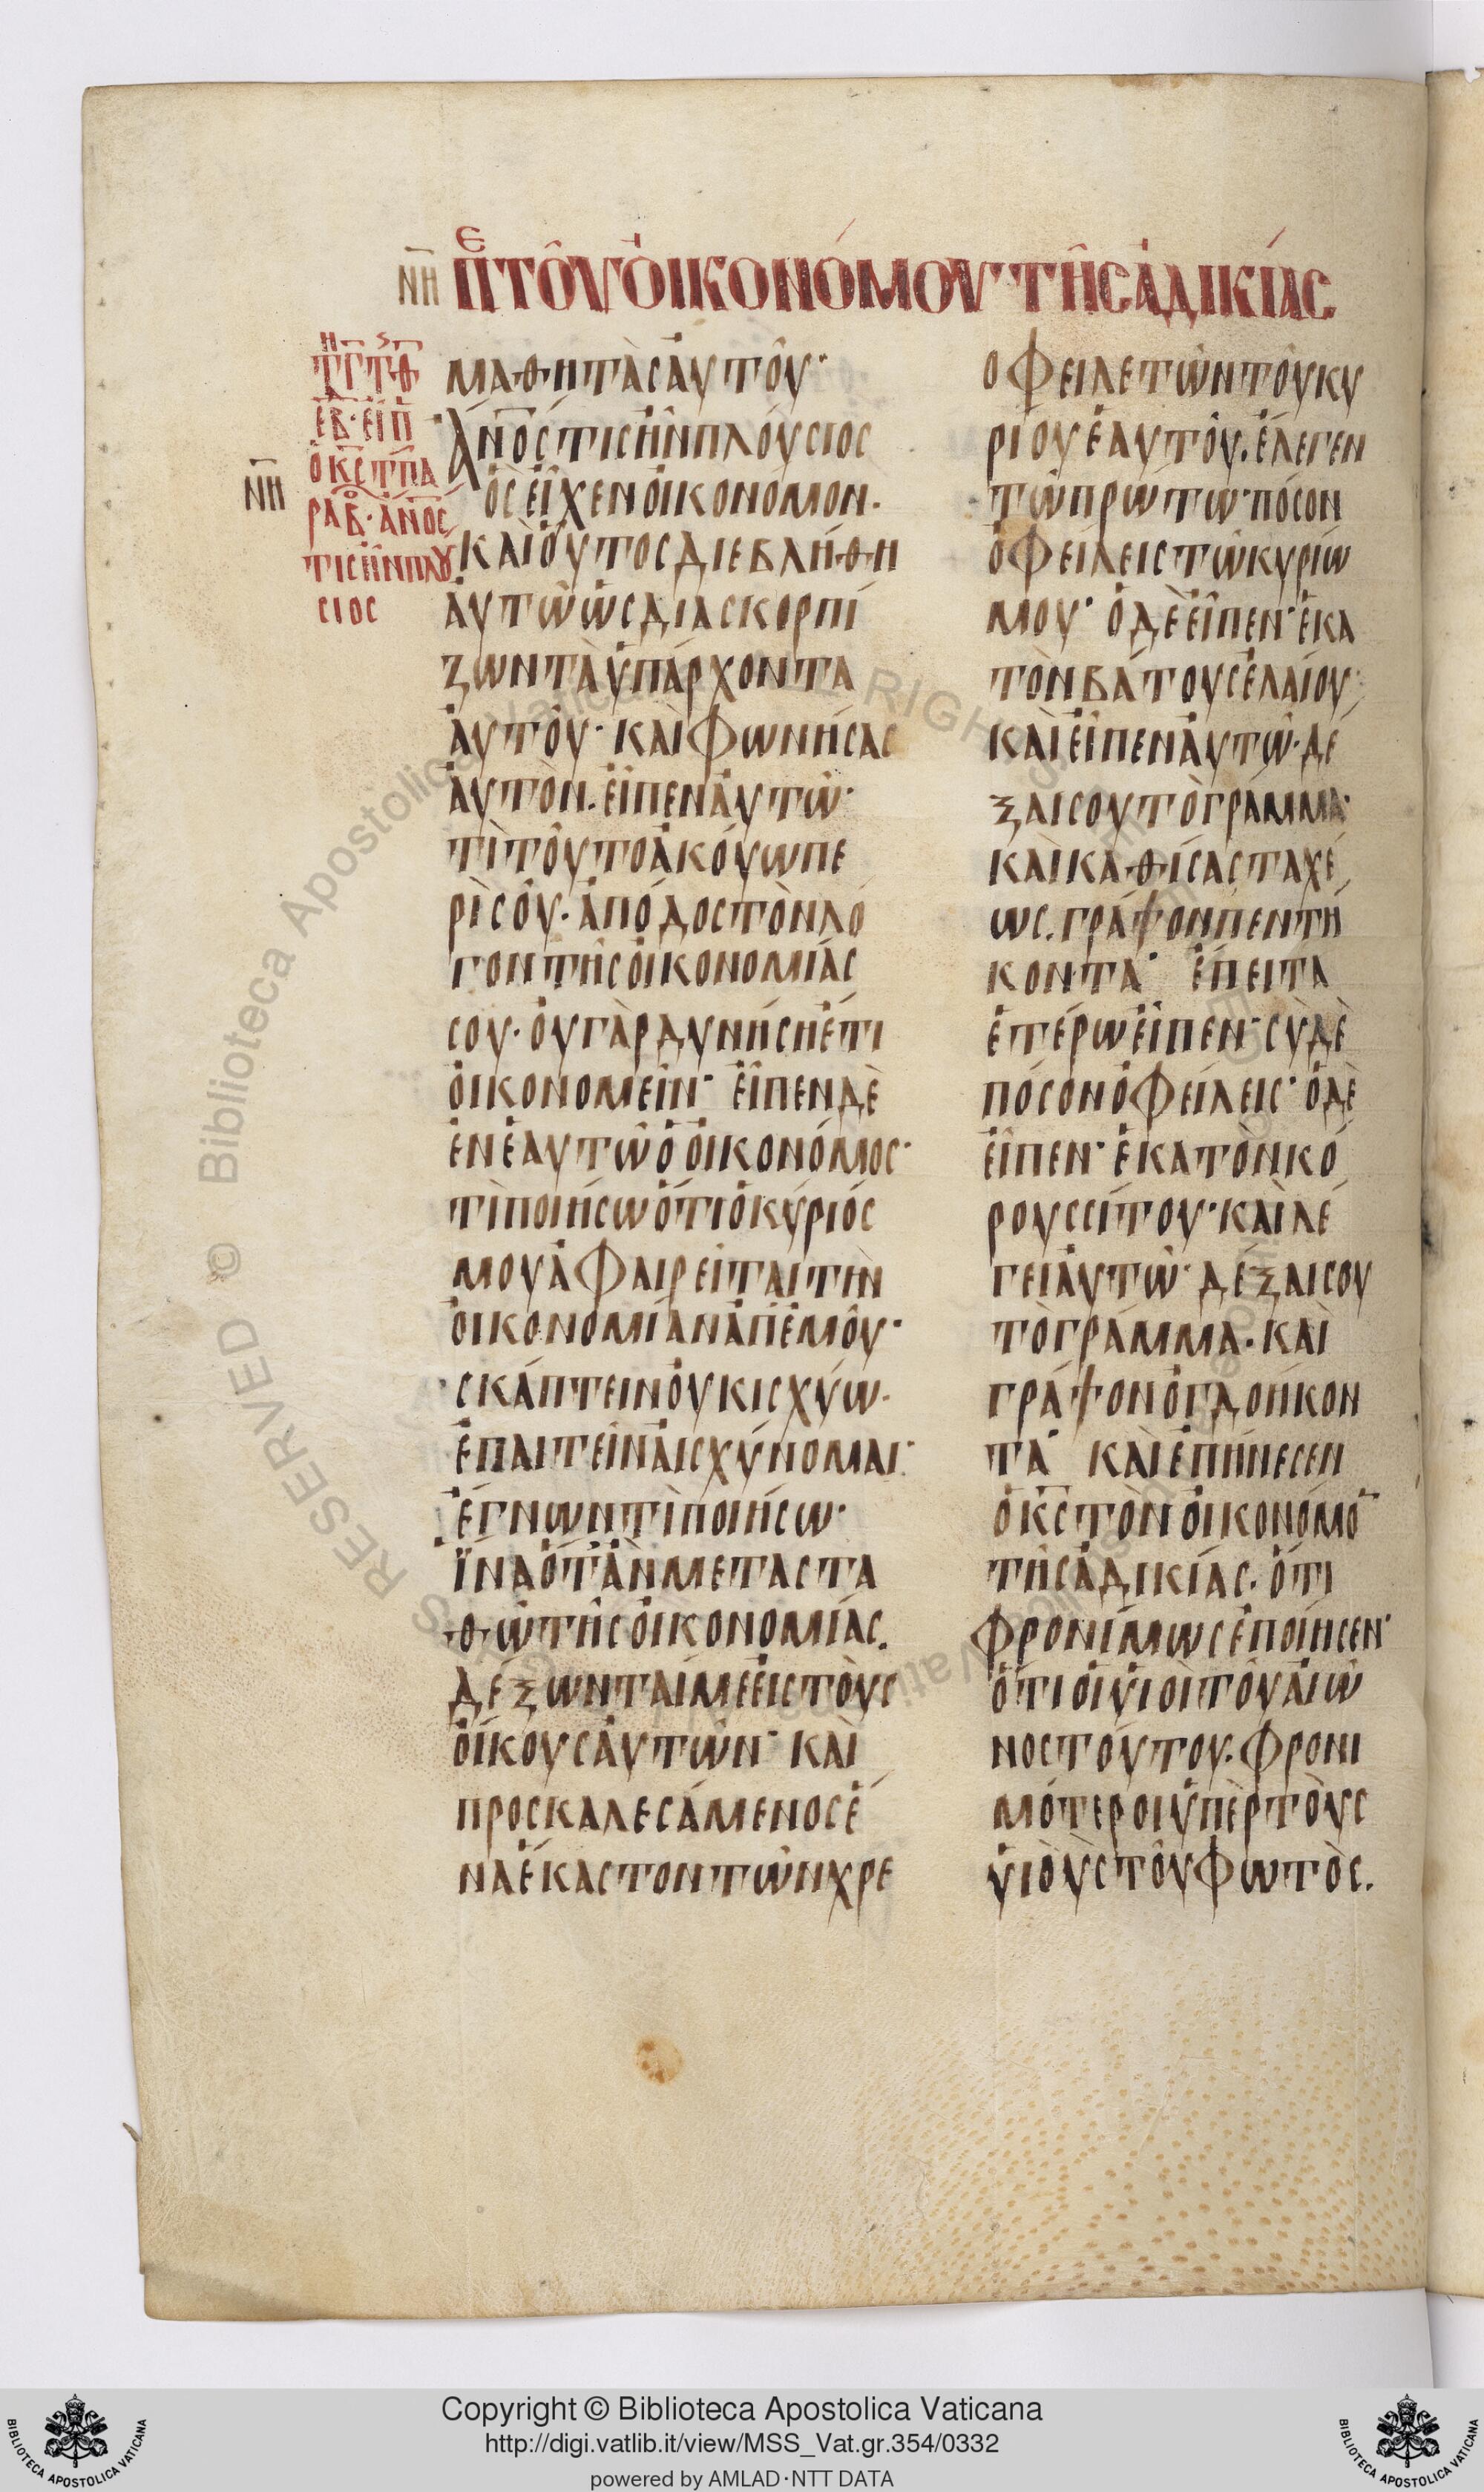 ΝΗ ΠΕ ΤΟΥ ΟΙΚΟΝΟΜΟΥ ΤΗΣ ΑΔΙΚΙΑΣ
ΕΒ· ΕΙΠ
Ο ΚΣ Τ ΠΑ
ΝΗ
ΡΑΒ· ΑΝΟΣ
ΤΙΣ ΗΝ ΠΛΟΥ
ΣΙΟΣ
ΜΑΘΗΤΑΣ ΑΥΤΟΥ·
ΑΝΟΣ ΤΙΣ ΗΝ ΠΛΟΥΣΙΟΣ
ΟΣ ΕΙΧΕΝ ΟΙΚΟΝΟΜΟΝ·
ΚΑΙ ΟΥΤΟΣ ΔΙΕΒΛΗΘΗ
ΑΥΤΩ ΩΣ ΔΙΑΣΚΟΡΠΙ
ΖΩΝ ΤΑ ΥΠΑΡΧΟΝΤΑ
ΑΥΤΟΥ· ΚΑΙ ΦΩΝΗΣΑΣ
ΑΥΤΟΝ. ΕΙΠΕΝ ΑΥΤΩ·
ΤΙ ΤΟΥΤΟ ΑΚΟΥΩ ΠΕ
ΡΙ ΣΟΥ· ΑΠΟΔΟΣ ΤΟΝ ΛΟ
ΓΟΝ ΤΗΣ ΟΙΚΟΝΟΜΙΑΣ
ΣΟΥ· ΟΥ ΓΑΡ ΔΥΝΗΣΗ ΕΤΙ
ΟΙΚΟΝΟΜΕΙΝ· ΕΙΠΕΝ ΔΕ
ΕΝ ΕΑΥΤΩ Ο ΟΙΚΟΝΟΜΟΣ·
ΤΙ ΠΟΙΗΣΩ ΟΤΙ Ο ΚΥΡΙΟΣ
ΜΟΥ ΑΦΑΙΡΕΙΤΑΙ ΤΗΝ
ΟΙΚΟΝΟΜΙΑΝ ΑΠ ΕΜΟΥ·
ΣΚΑΠΤΕΙΝ ΟΥΚ ΙΣΧΥΩ·
ΕΠΑΙΤΕΙΝ ΑΙΣΧΥΝΟΜΑΙ·
ΕΓΝΩΝ ΤΙ ΠΟΙΗΣΩ·
ΪΝΑ ΟΤΑΝ ΜΕΤΑΣΤΑ
ΘΩ ΤΗΣ ΟΙΚΟΝΟΜΙΑΣ.
ΔΕΞΩΝΤΑΙ ΜΕ ΕΙΣ ΤΟΥΣ
ΟΙΚΟΥΣ ΑΥΤΩΝ· ΚΑΙ
ΠΡΟΣΚΑΛΕΣΑΜΕΝΟΣ Ε
ΝΑ ΕΚΑΣΤΟΝ ΤΩΝ ΧΡΕ
ΟΦΕΙΛΕΤΩΝ ΤΟΥ ΚΥ
ΡΙΟΥ ΕΑΥΤΟΥ. ΕΛΕΓΕΝ
ΤΩ ΠΡΩΤΩ· ΠΟΣΟΝ
ΟΦΕΙΛΕΙΣ ΤΩ ΚΥΡΙΩ
ΜΟΥ· Ο ΔΕ ΕΙΠΕΝ· ΕΚΑ
ΤΟΝ ΒΑΤΟΥΣ ΕΛΑΙΟΥ·
ΚΑΙ ΕΙΠΕΝ ΑΥΤΩ· ΔΕ
ΞΑΙ ΣΟΥ ΤΟ ΓΡΑΜΜΑ·
ΚΑΙ ΚΑΘΙΣΑΣ ΤΑΧΕ
ΩΣ. ΓΡΑΨΟΝ ΠΕΝΤΗ
ΚΟΝΤΑ· ΕΠΕΙΤΑ
ΕΤΕΡΩ ΕΙΠΕΝ· ΣΥ ΔΕ
ΠΟΣΟΝ ΟΦΕΙΛΕΙΣ· Ο ΔΕ
ΕΙΠΕΝ· ΕΚΑΤΟΝ ΚΟ
ΡΟΥΣ ΣΙΤΟΥ· ΚΑΙ ΛΕ
ΓΕΙ ΑΥΤΩ· ΔΕΞΑΙ ΣΟΥ
ΤΟ ΓΡΑΜΜΑ. ΚΑΙ
ΓΡΑΨΟΝ ΟΓΔΟΗΚΟΝ
ΤΑ· ΚΑΙ ΕΠΗΝΕΣΕΝ
Ο ΚΣ ΤΟΝ ΟΙΚΟΝΟΜΟ
ΤΗΣ ΑΔΙΚΙΑΣ. ΟΤΙ
ΦΡΟΝΙΜΩΣ ΕΠΟΙΗΣΕΝ·
ΟΤΙ ΟΙ ΥΙΟΙ ΤΟΥ ΑΙΩ
ΝΟΣ ΤΟΥΤΟΥ. ΦΡΟΝΙ
ΜΟΤΕΡΟΙ ΥΠΕΡ ΤΟΥΣ
ΥΙΟΥΣ ΤΟΥ ΦΩΤΟΣ.
Copyright © Biblioteca Apostolica Vaticana
http://digi.vatlib.it/view/MSS_Vat.gr.354/0332
powered by AMLAD·NTT DATA
BIBLIOTECA APOSTOLICA VATICANA
BIBLIOTECA APOSTOLICA VATICANA